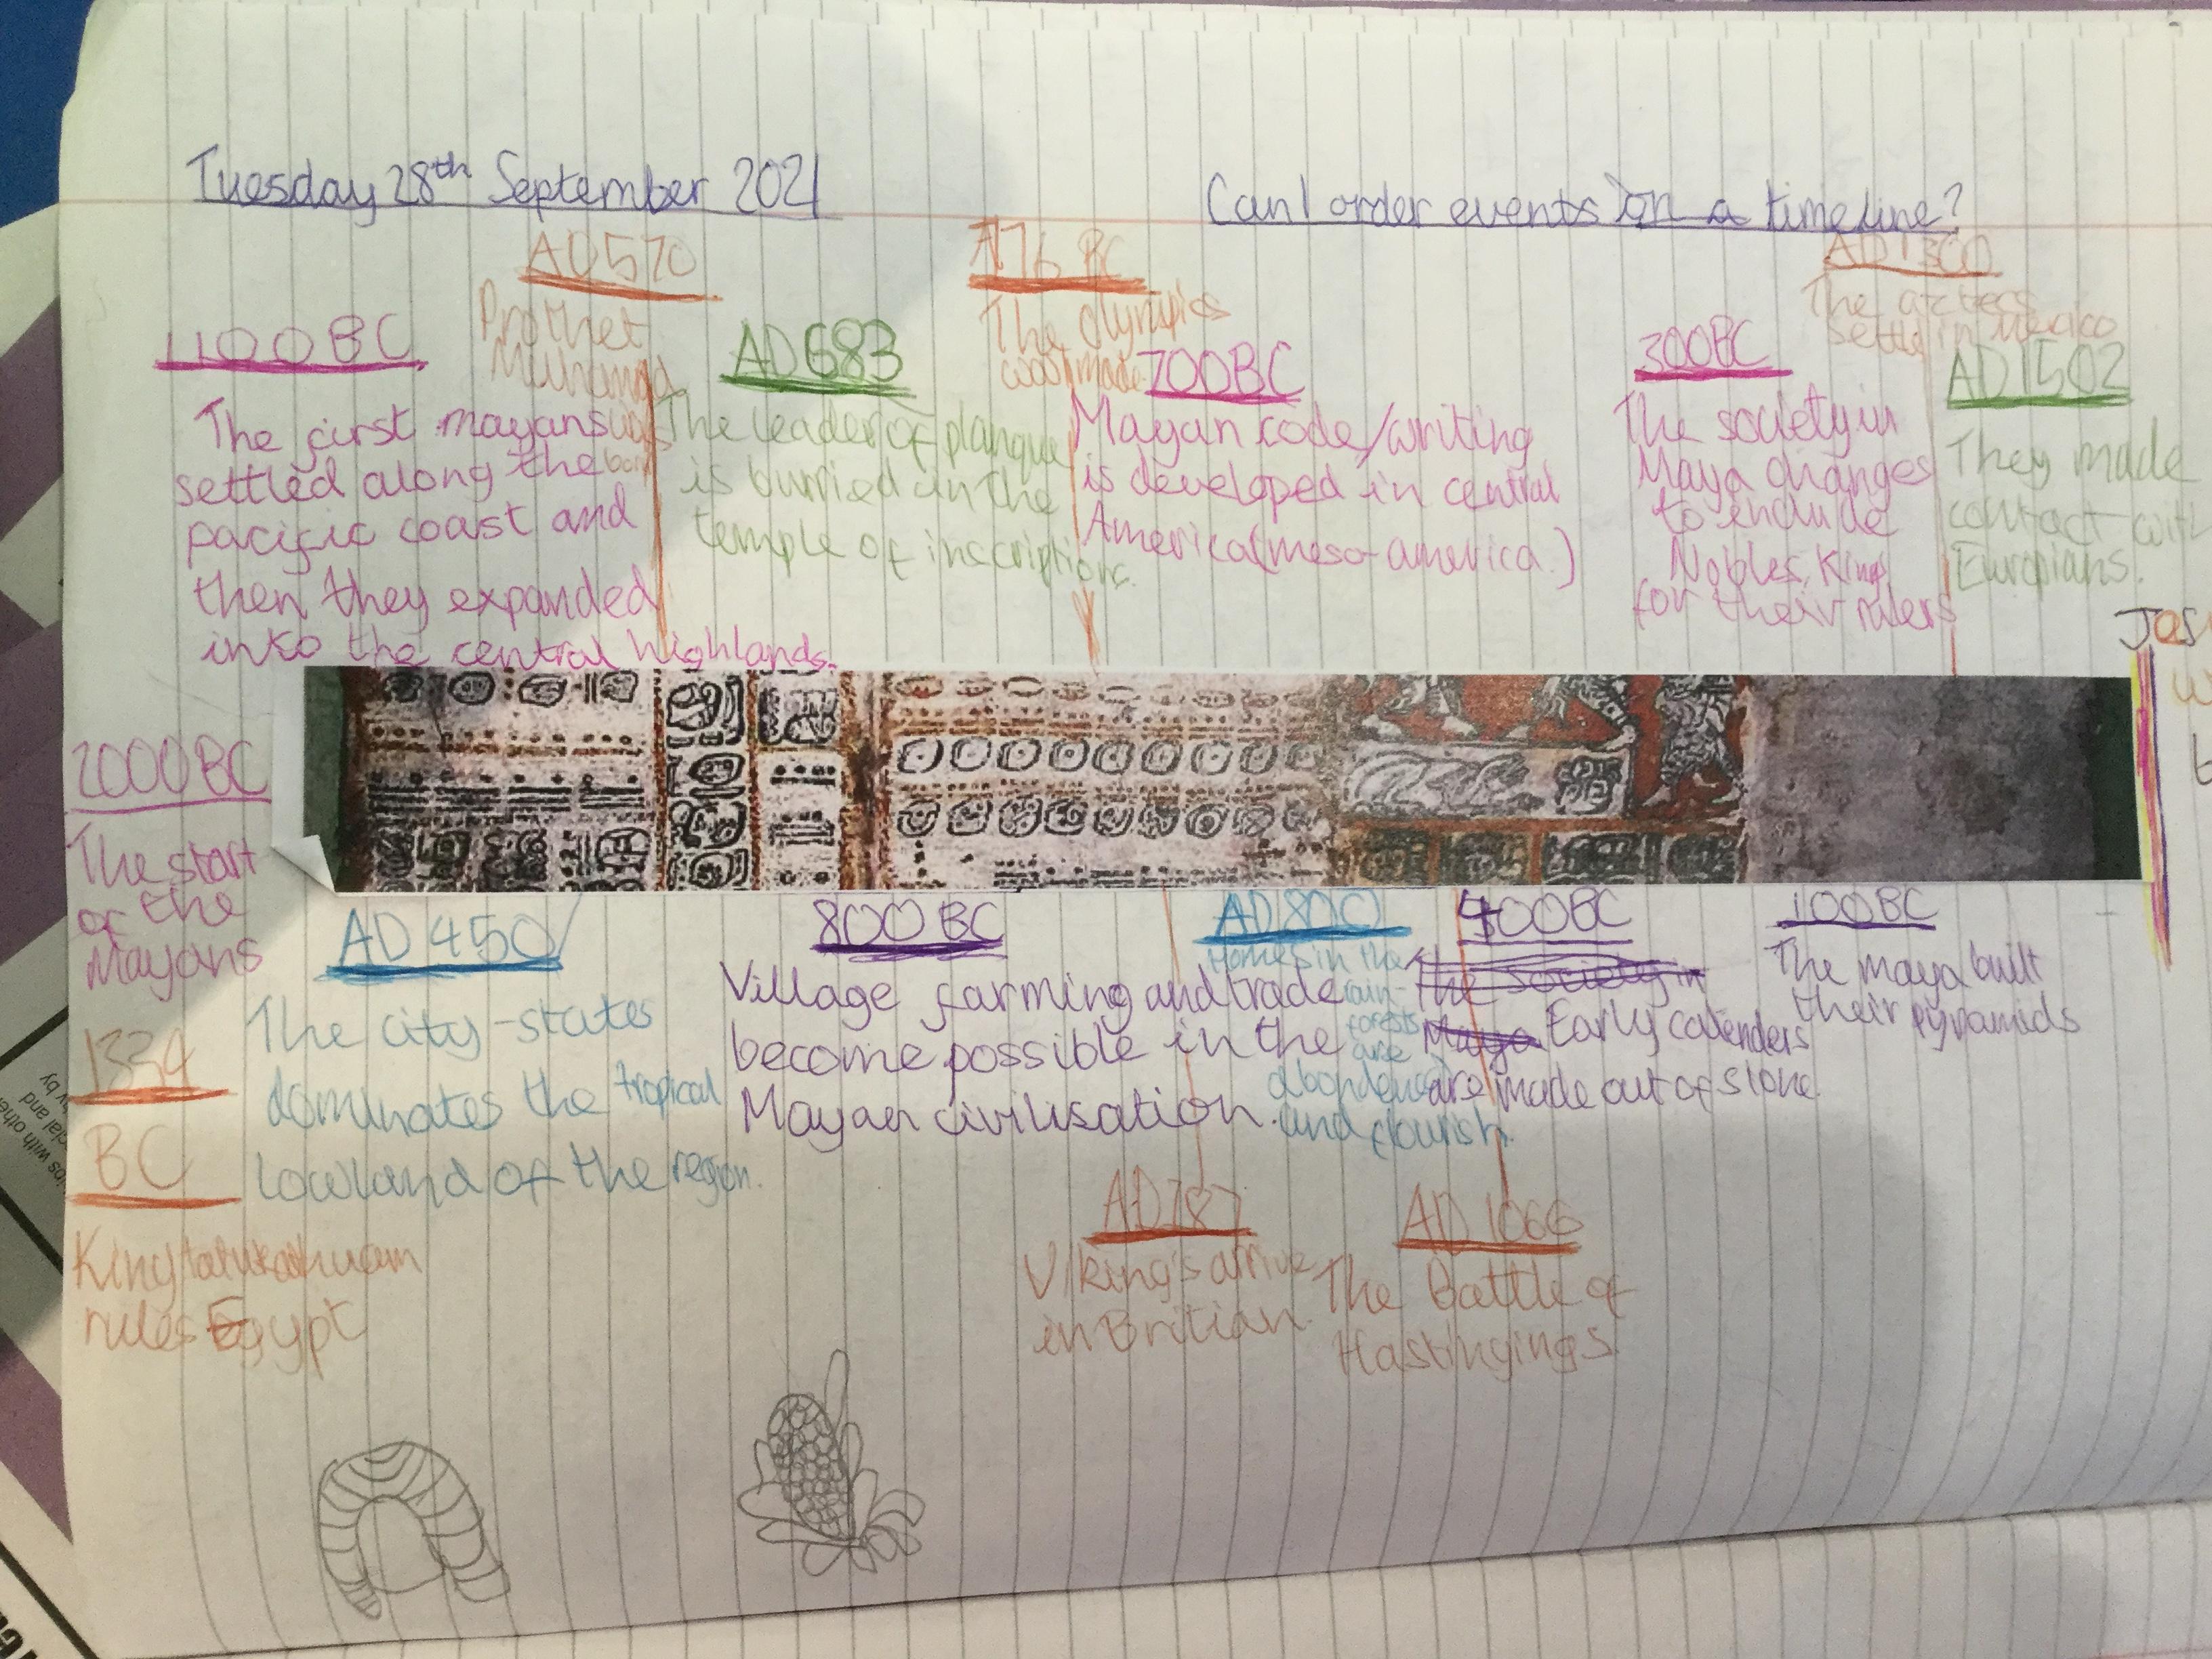 Tuesday 28th September 2021
Can I order events on a timeline?
AD 570
Prothet
Muhamad
was
born
776 BC
The Olympics
was made
AD 1300
The aztecs
settle in Mexico
1100 BC
The first mayans
settled along the
pacific coast and
then they expanded
into the central highlands.
AD 683
The leader of planque
is burried in the
temple of inscriptions.
700BC
Mayan code/writing
is developed in central
America (meso-america.)
300BC
The society in
Maya changes
to include
Nobles, Kings
for their rulers
AD 1502
They made
contact with
Europians.
Jes
2000 BC
The start
of the
Mayans
1334
BC
King
rules Egypt
AD 450
The city-states
dominates the tropical
lowland of the region.
800 BC
Village farming and trade
become possible in the
Mayan civilisation.
AD 800
Homes in the
rain-
forests
are
abondened
and flourish.
400BC
The society in
Maya Early calenders
are made out of stone.
100BC
The maya built
their pyramids
AD 787
Viking's arrive
in Britian.
AD 1066
The Battle of
Hastingings